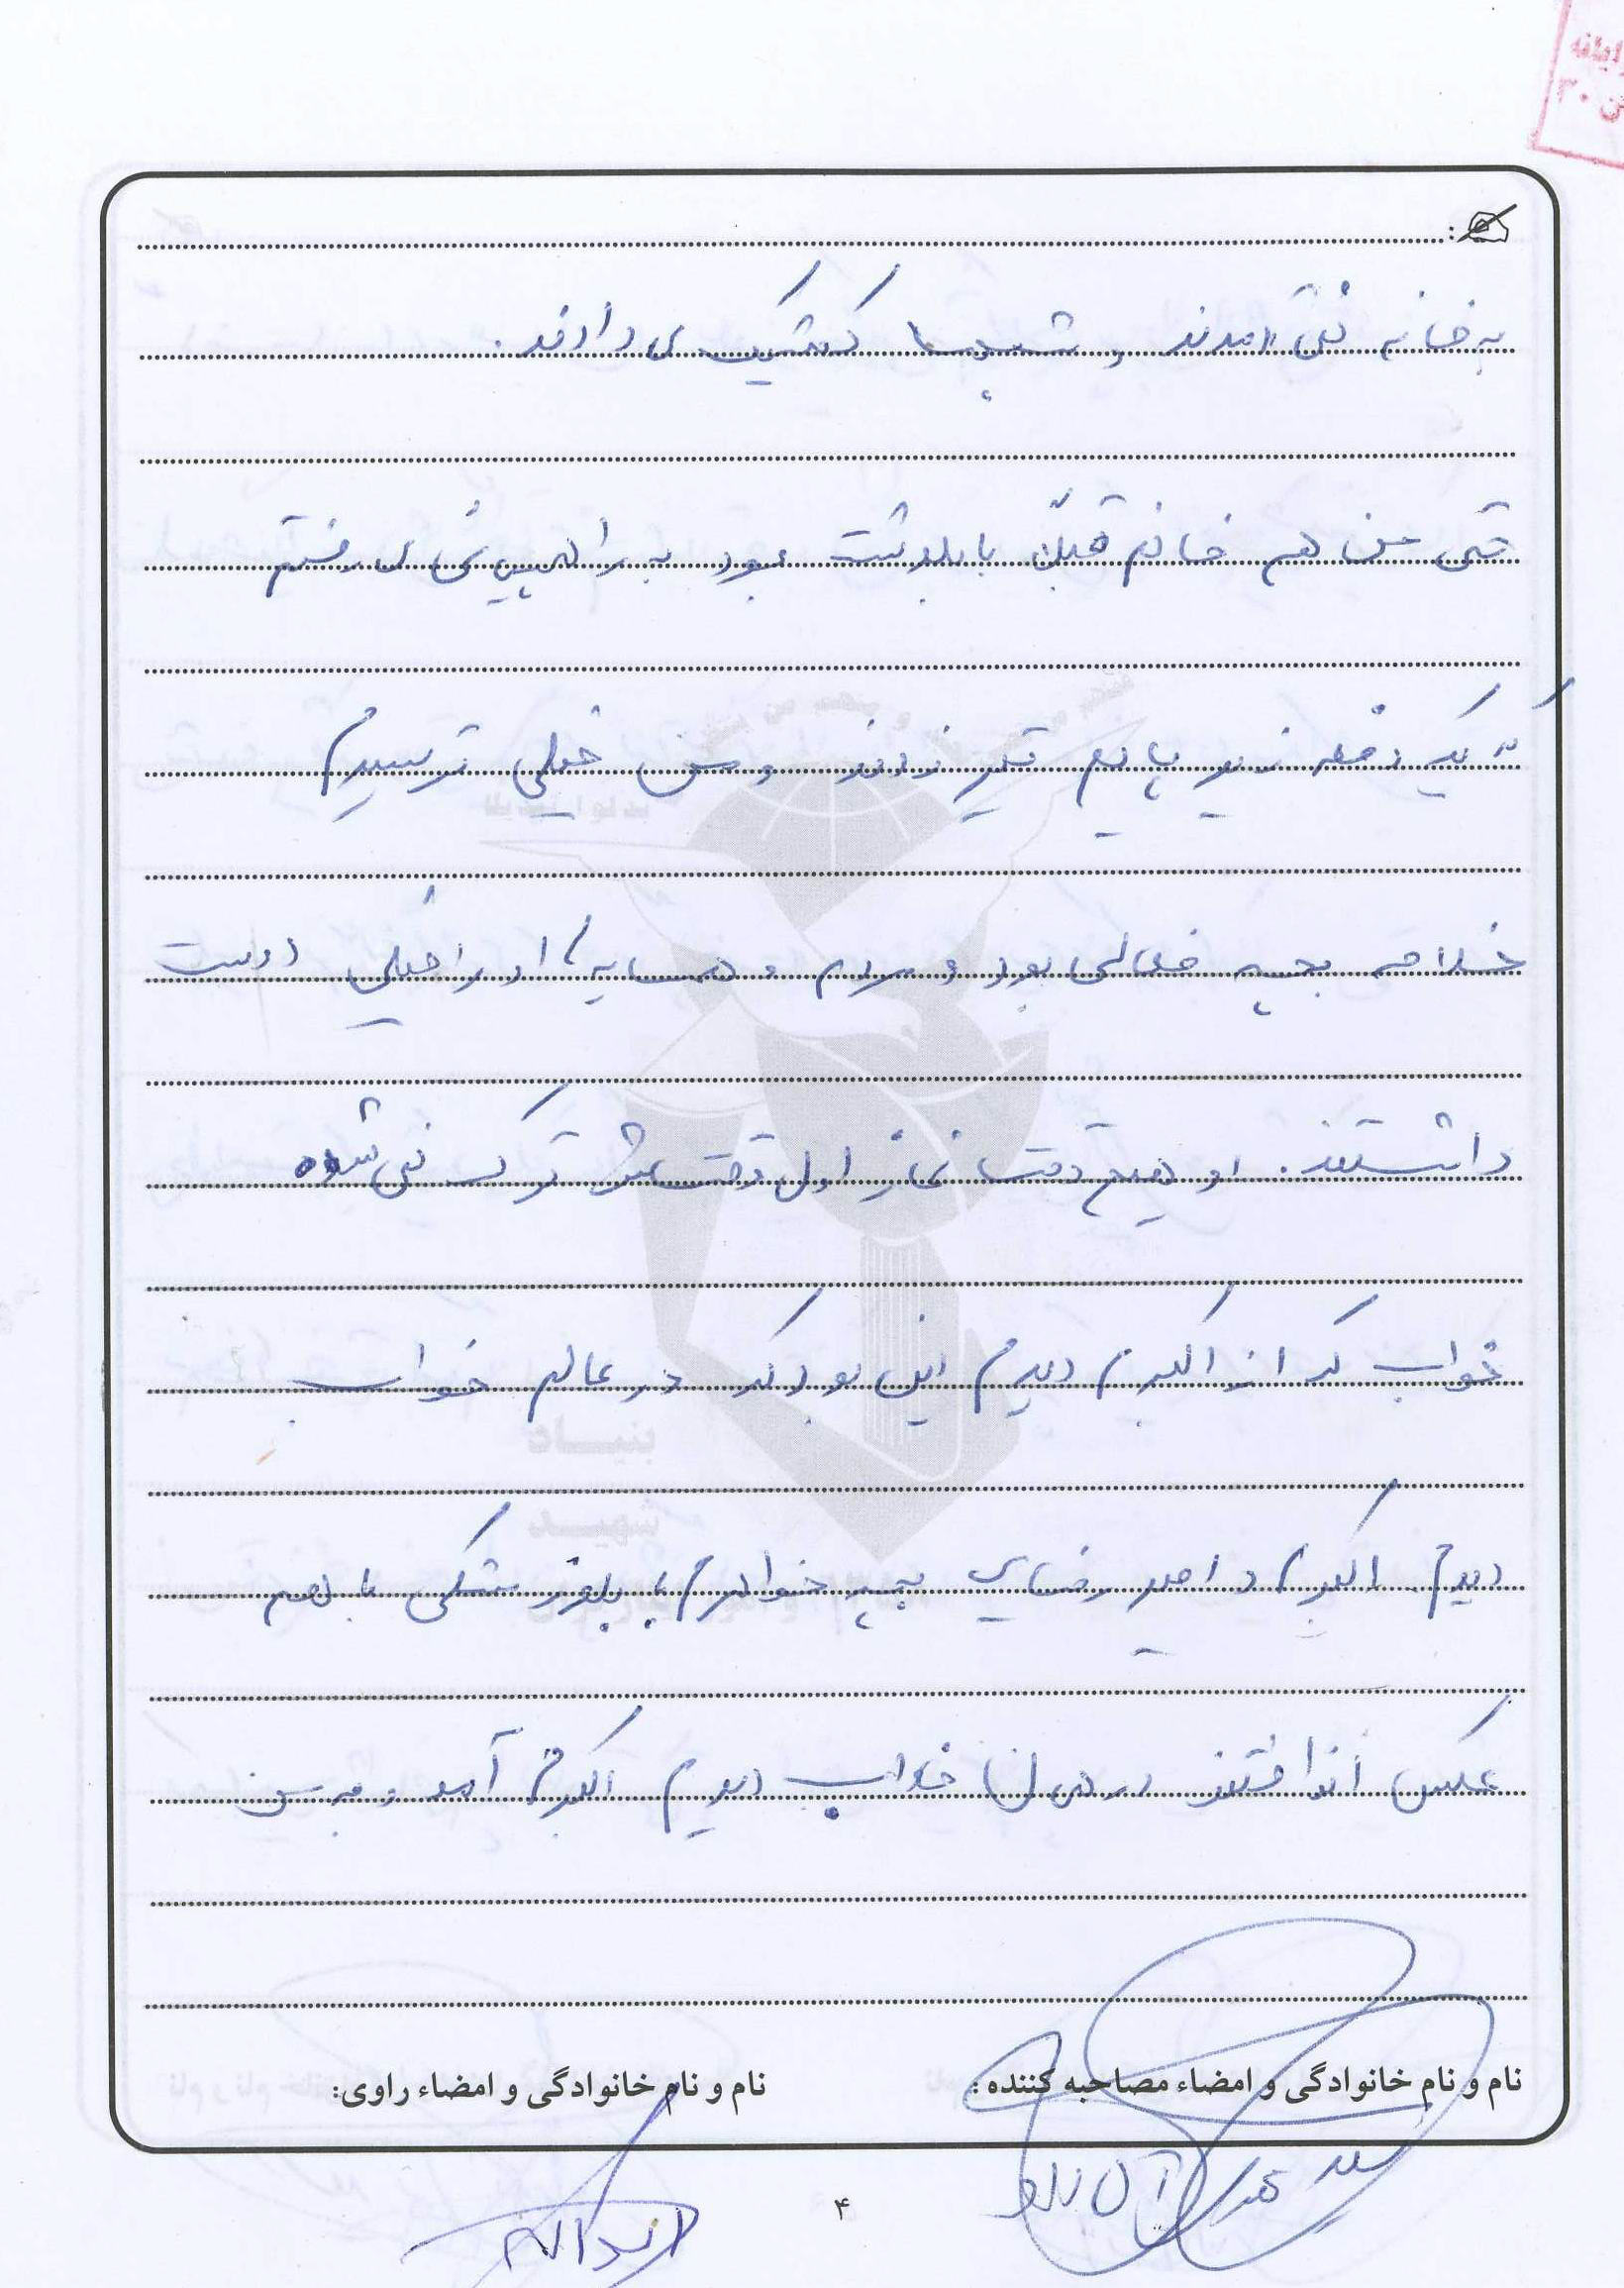 به خانه نمی آمدند و شبها کشیک می دادند.
حتی من هم خانم قبلاً با بلوزشت بود به راهپیمائی می رفتم
که یک دفعه زیر پایم تیر زدند و من خیلی ترسیدم
خلاصه بچه فعالی بود و مردم و همسایه ها او را خیلی دوست
داشتند. او هیچ وقت نماز اول وقتش ترک نمی شده
خواب که از اکبرم دیدم این بود که در عالم خواب
دیدم اکبرم و امیر رضای بچه خواهرم با بلوز مشکی با هم
عکس انداختند در همان خواب دیدم اکبرم آمد و به من
نام و نام خانوادگی و امضاء مصاحبه کننده:
نام و نام خانوادگی و امضاء راوی:
۴